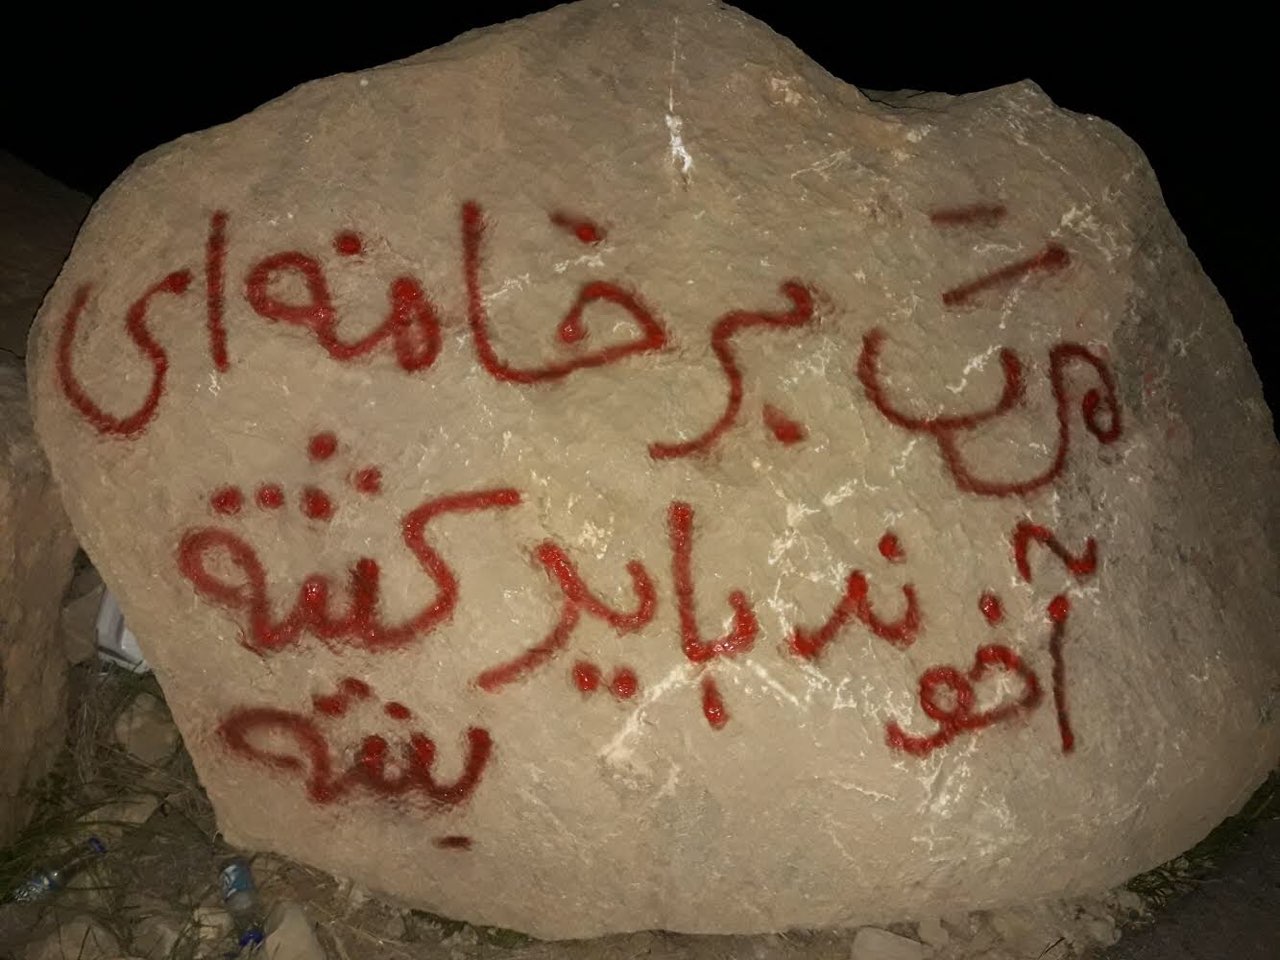 مرگ بر خامنه ای
آخوند باید کشته
بشه